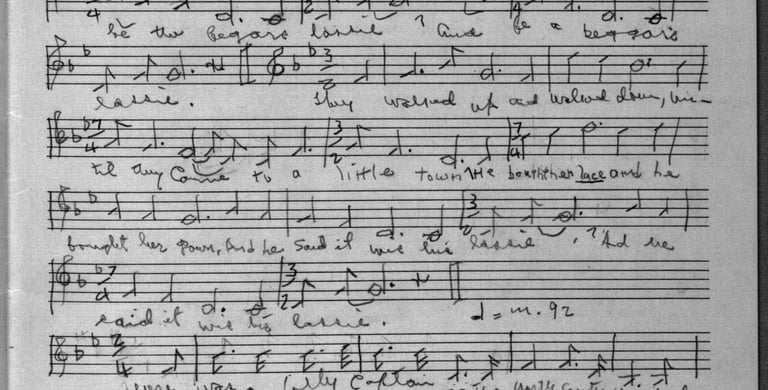 be the beggars lassie ? And be a beggars
lassie. They walked up and walked down, un-
til they came to a little town. He bought her lace and he
bought her gown, And he said it was his lassie . ? And he
said it was his lassie.
d = m. 92
was a jolly Captain